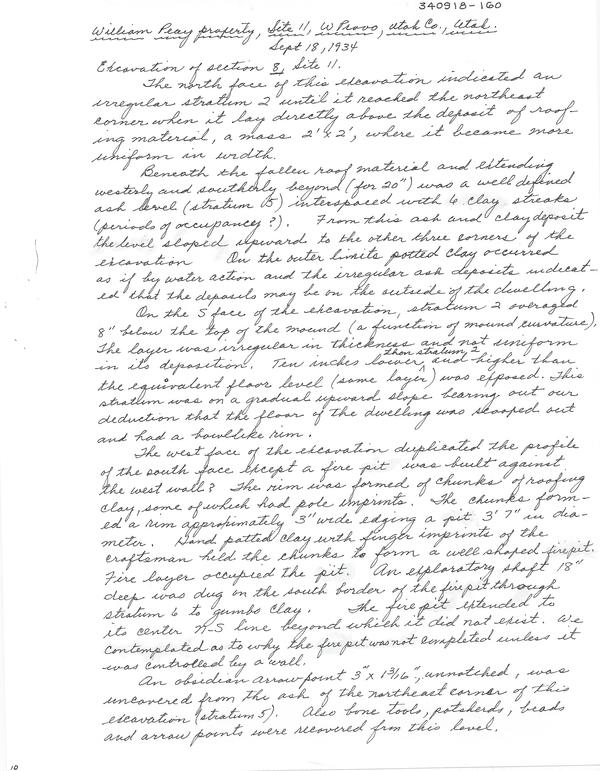 340918-160
William Peay property, Site 11, W Provo, Utah Co., Utah.
Sept 18, 1934
Excavation of section 8, Site 11.
The north face of this excavation indicated an
irregular stratum 2 until it reached the northeast
corner when it lay directly above the deposit of roof-
ing material, a mass 2' x 2', where it became more
uniform in width.
Beneath the fallen roof material and extending
westerly and southerly beyond (for 20") was a well defined
ash level (stratum 5) interspaced with 6 clay streaks
(periods of occupancy?). From this ash and clay deposit
the level sloped upward to the other three corners of the
excavation On the outer limits potted clay occurred
as if by water action and the irregular ash deposits indicat-
ed that the deposits may be on the outside of the dwelling.
On the S face of the excavation, stratum 2 averaged
8" below the top of the mound (a function of mound curvature).
The layer was irregular in thickness and not uniform
in its deposition. Ten inches lower than stratum 2, and higher than
the equivalent floor level (some layer) was exposed. This
stratum was on a gradual upward slope bearing out our
deduction that the floor of the dwelling was scooped out
and had a bowllike rim.
The west face of the excavation duplicated the profile
of the south face except a fire pit was built against
the west wall? The rim was formed of chunks of roofing
clay, some of which had pole imprints. The chunks form-
ed a rim approximately 3" wide edging a pit 3' 7" in dia-
meter. Hand patted clay with finger imprints of the
craftsman held the chunks to form a well shaped firepit.
Fire layer occupied the pit. An exploratory shaft 18"
deep was dug on the south border of the fire pit through
stratum 6 to gumbo clay. The fire pit extended to
its center N-S line beyond which it did not exist. We
contemplated as to why the fire pit was not completed unless it
was controlled by a wall.
An obsidian arrow point 3" x 1 3/16", unnotched, was
uncovered from the ash of the northeast corner of this
excavation (stratum 5). Also bone tools, potsherds, beads
and arrow points were recovered from this level.
10